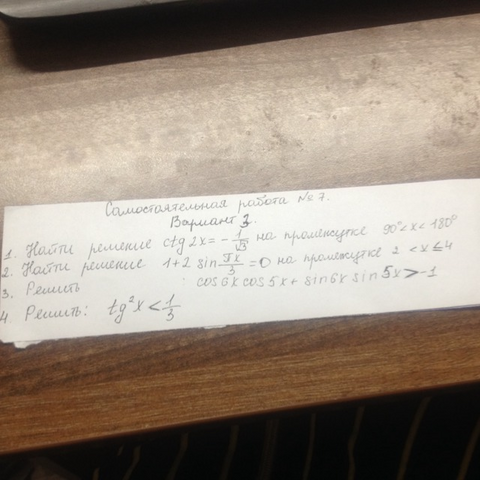 Самостоятельная работа №7.
Вариант 3.
1. Найти решение ctg 2x = -1/√3 на промежутке 90° < x < 180°
2. Найти решение 1+2 sin πx/3 = 0 на промежутке 2 < x ≤ 4
3. Решить cos 6x cos 5x + sin 6x sin 5x > -1
4. Решить: tg²x < 1/3